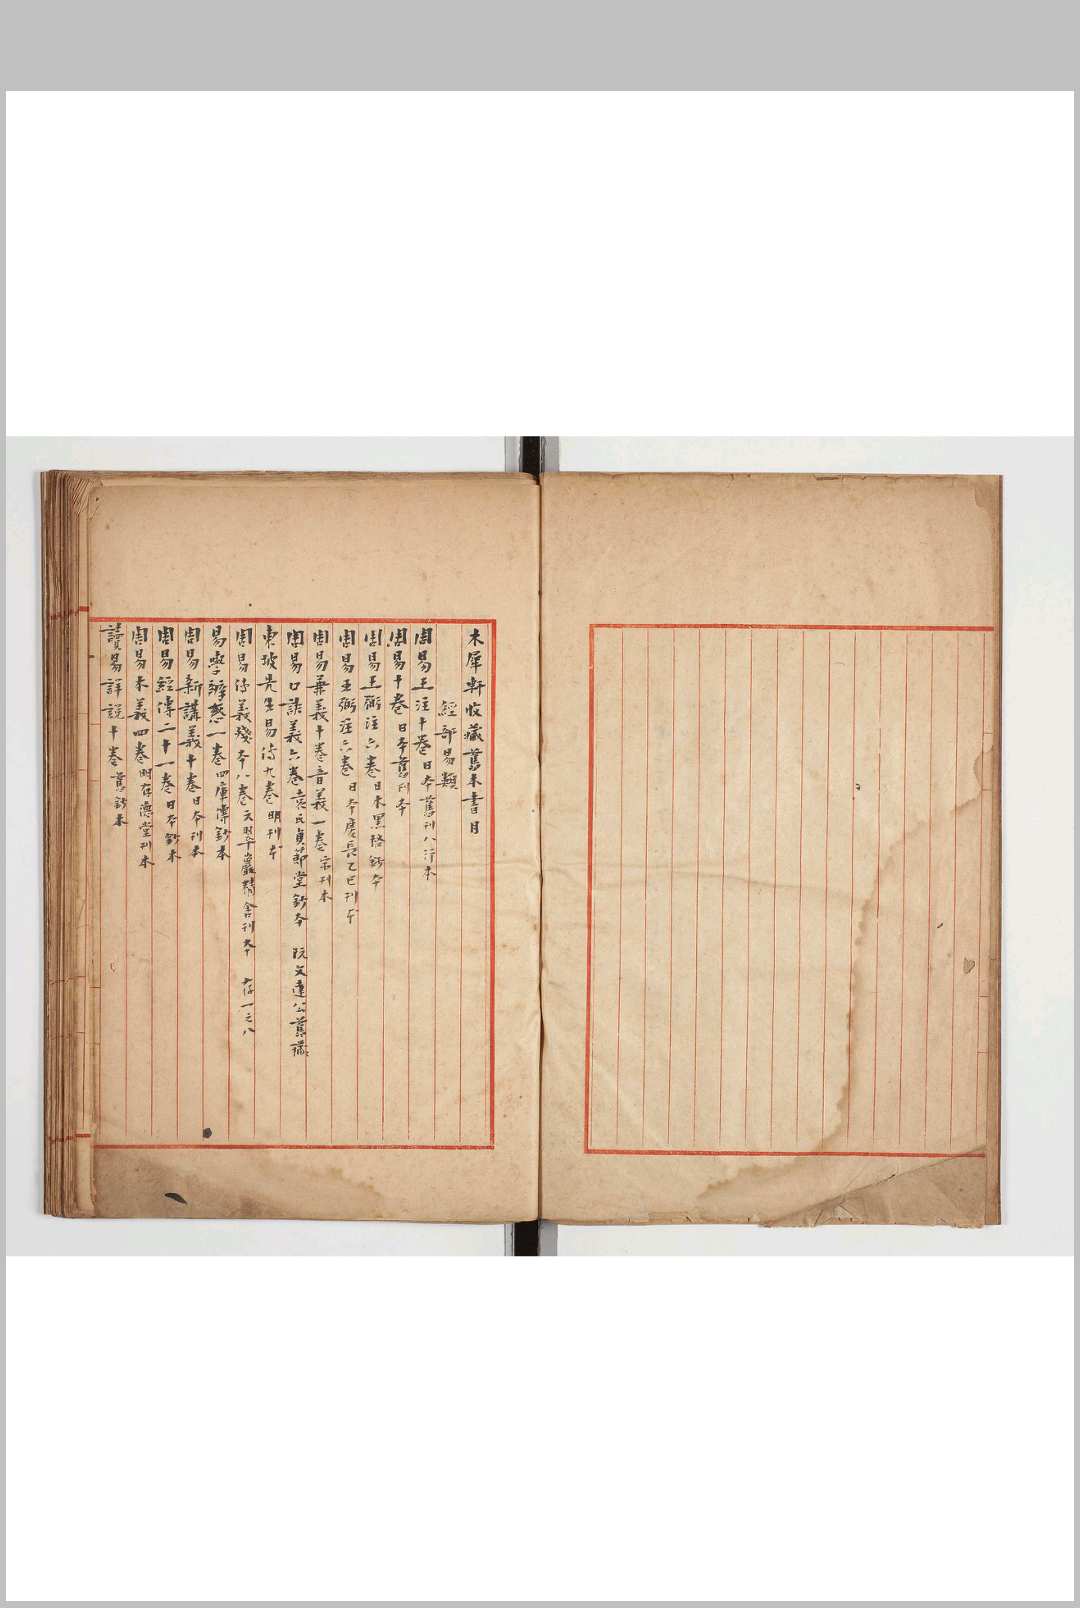 木犀軒收藏舊本書目
經部易類
周易王注十卷日本舊刊八行本
周易十卷日本舊刊本
周易王弼注六卷日本黑格鈔本
周易王弼注六卷日本慶長乙巳刊本
周易兼義十卷音義一卷宗刊本
周易口訣義六卷袁氏貞節堂鈔本 阮文達公舊藏
東坡先生易傳九卷明刊本
周易傳義殘本八卷天翠巖精舍刊本 存一之八
易學辨惑一卷四庫傳鈔本
周易新講義十卷日本刊本
周易經傳二十一卷日本鈔本
周易本義四卷明存德堂刊本
讀易詳說十卷舊鈔本